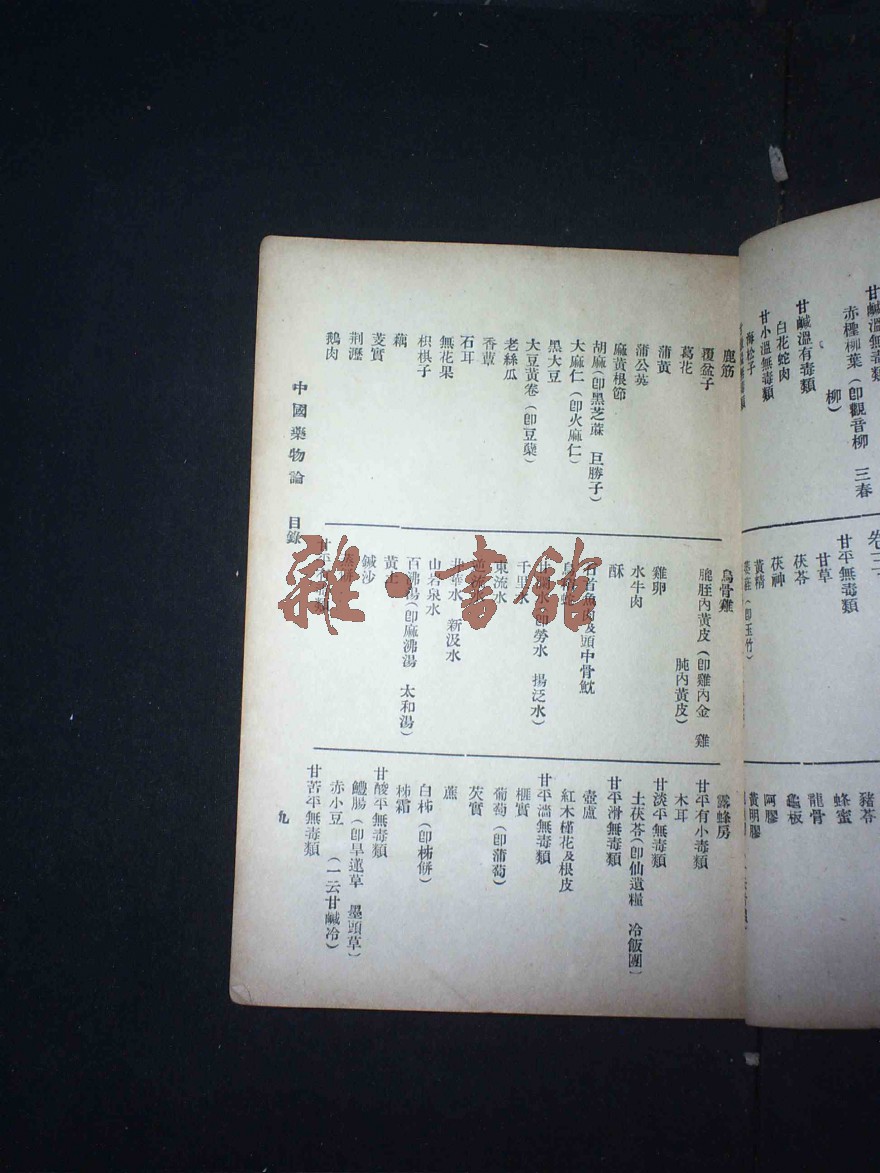 甘鹹溫無毒類
赤檉柳葉（卽觀音柳　三春
柳）
甘鹹溫有毒類
白花蛇肉
甘小溫無毒類
海松子
卷三下
甘平無毒類
甘草
茯苓
茯神
黃精
豬苓
蜂蜜
龍骨
龜板
阿膠
黃明膠
鹿筋
覆盆子
葛花
蒲黃
蒲公英
麻黃根節
胡麻（卽黑芝蔴　巨勝子）
大麻仁（卽火麻仁）
黑大豆
大豆黃卷（卽豆蘗）
老絲瓜
香蕈
石耳
無花果
枳椇子
藕
芰實
荆瀝
鵝肉
烏骨雞
膍胵內黃皮（卽雞內金　雞
肫內黃皮）
雞卵
水牛肉
酥
石首魚肉及頭中骨魫
千里水
東流水
井華水　新汲水
山岩泉水
百沸湯（卽麻沸湯　太和湯）
黃土
鍼沙
露蜂房
甘平有小毒類
木耳
甘淡平無毒類
土茯苓（卽仙遺糧　冷飯團）
甘平滑無毒類
壺盧
紅木槿花及根皮
甘平濇無毒類
榧實
葡萄（卽蒲萄）
芡實
蕉
白柿（卽柿餅）
柿霜
甘酸平無毒類
鱧腸（卽旱蓮草　墨頭草）
赤小豆　（一云甘鹹冷）
甘苦平無毒類
中國藥物論　目錄
九
雜·書館